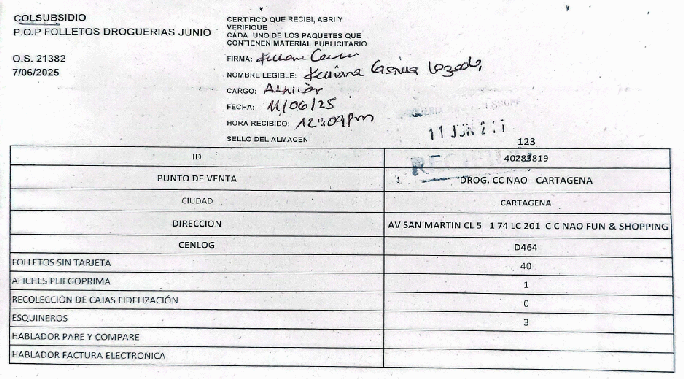 COLSUBSIDIO
P.O.P FOLLETOS DROGUERIAS JUNIO
O.S. 21382
7/06/2025
CERTIFICO QUE RECIBI, ABRI Y
VERIFIQUE
CADA UNO DE LOS PAQUETES QUE
CONTIENEN MATERIAL PUBLICITARIO
FIRMA:
NOMBRE LEGIBLE:
CARGO:
FECHA: 11/06/25
HORA RECIBIDO: 12:09pm
SELLO DEL ALMACEN
11 JUN
123
ID 40283819
PUNTO DE VENTA 1 DROG. CC NAO CARTAGENA
CIUDAD CARTAGENA
DIRECCION AV SAN MARTIN CL 5 1 74 LC 201 C C NAO FUN & SHOPPING
CENLOG D464
FOLLETOS SIN TARJETA 40
AFICHES PLIEGOPRIMA 1
RECOLECCIÓN DE CAJAS FIDELIZACIÓN 0
ESQUINEROS 3
HABLADOR PARE Y COMPARE
HABLADOR FACTURA ELECTRONICA